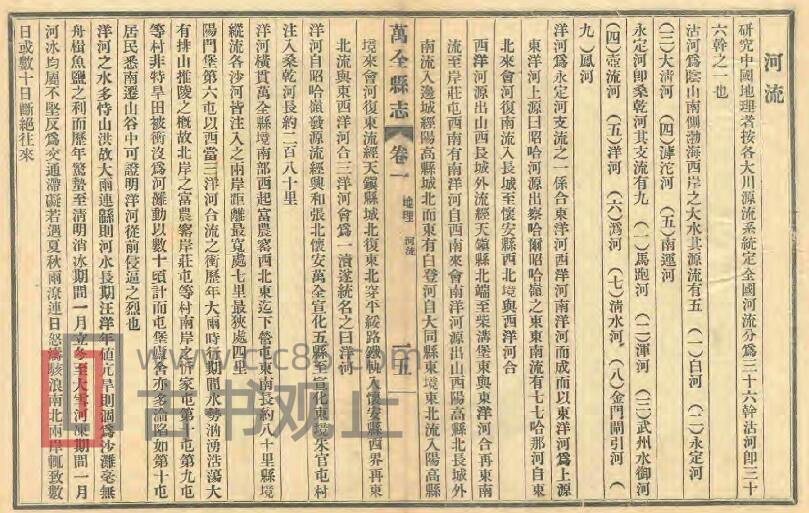 河流
研究中國地理者按各大川源流系統定全國河流分為三十六幹沽河即三十
六幹之一也
沽河為陰山南側渤海西岸之大水其源流有五　（一）白河　（二）永定河
（三）大清河　（四）滹沱河　（五）南運河
永定河即桑乾河其支流有九　（一）馬跑河　（二）渾河　（三）武州水御河
（四）壺流河　（五）洋河　（六）媯河　（七）清水河　（八）金門閘引河　（
九）鳳河
洋河為永定河支流之一係合東洋河西洋河南洋河而成而以東洋河為上源
東洋河上源曰昭哈河源出察哈爾昭哈嶺之東東南流有七七哈那河自東
北來會河復南流入長城至懷安縣西北境與西洋河合
西洋河源出山西長城外流經天鎮縣北端至柴溝堡東與東洋河合再東南
流至岸莊屯西南有南洋河自西南來會南洋河源出山西陽高縣北長城外
南流入邊城經陽高縣城北而東有白登河自大同縣東境東北流入陽高縣
萬全縣志
卷一
地理
河流
一五
境來會河復東流經天鎮縣城北復東北穿平綏路鐵軌入懷安縣西界再東
北流與東西洋河合三洋河會為一瀆遂統名之曰洋河
洋河自昭哈嶺發源流經興和張北懷安萬全宣化五縣至宣化東境朱官屯村
注入桑乾河長約二百八十里
洋河橫貫萬全縣境南部西起富農窰西北東迄下營屯東南長約八十里縣境
縱流各沙河皆注入之兩岸距離最寬處七里最狹處四里
陽門堡第六屯以西當三洋河合流之衝歷年大雨時期間水勢洶湧浩蕩大
有排山推陵之概故北岸之富農窰岸莊屯等村南岸之忻家屯第十屯第九屯
等村非特旱田被衝沒為河灘動以數十頃計而屯堡廬舍亦多淪陷如第十屯
居民悉南遷山谷中可證明洋河從前侵逼之烈也
洋河之水多恃山洪故大雨連縣則河水長期汪洋年值亢旱則涸為沙灘毫無
舟楫魚鹽之利而歷年驚蟄至清明消冰期間一月立冬至大雪河凍期間一月
河冰均屬不堅反為交通滯礙若遇夏秋雨潦連日怒濤駭浪南北兩岸輒致數
日或數十日斷絕往來
www.crc8.com
古书观止